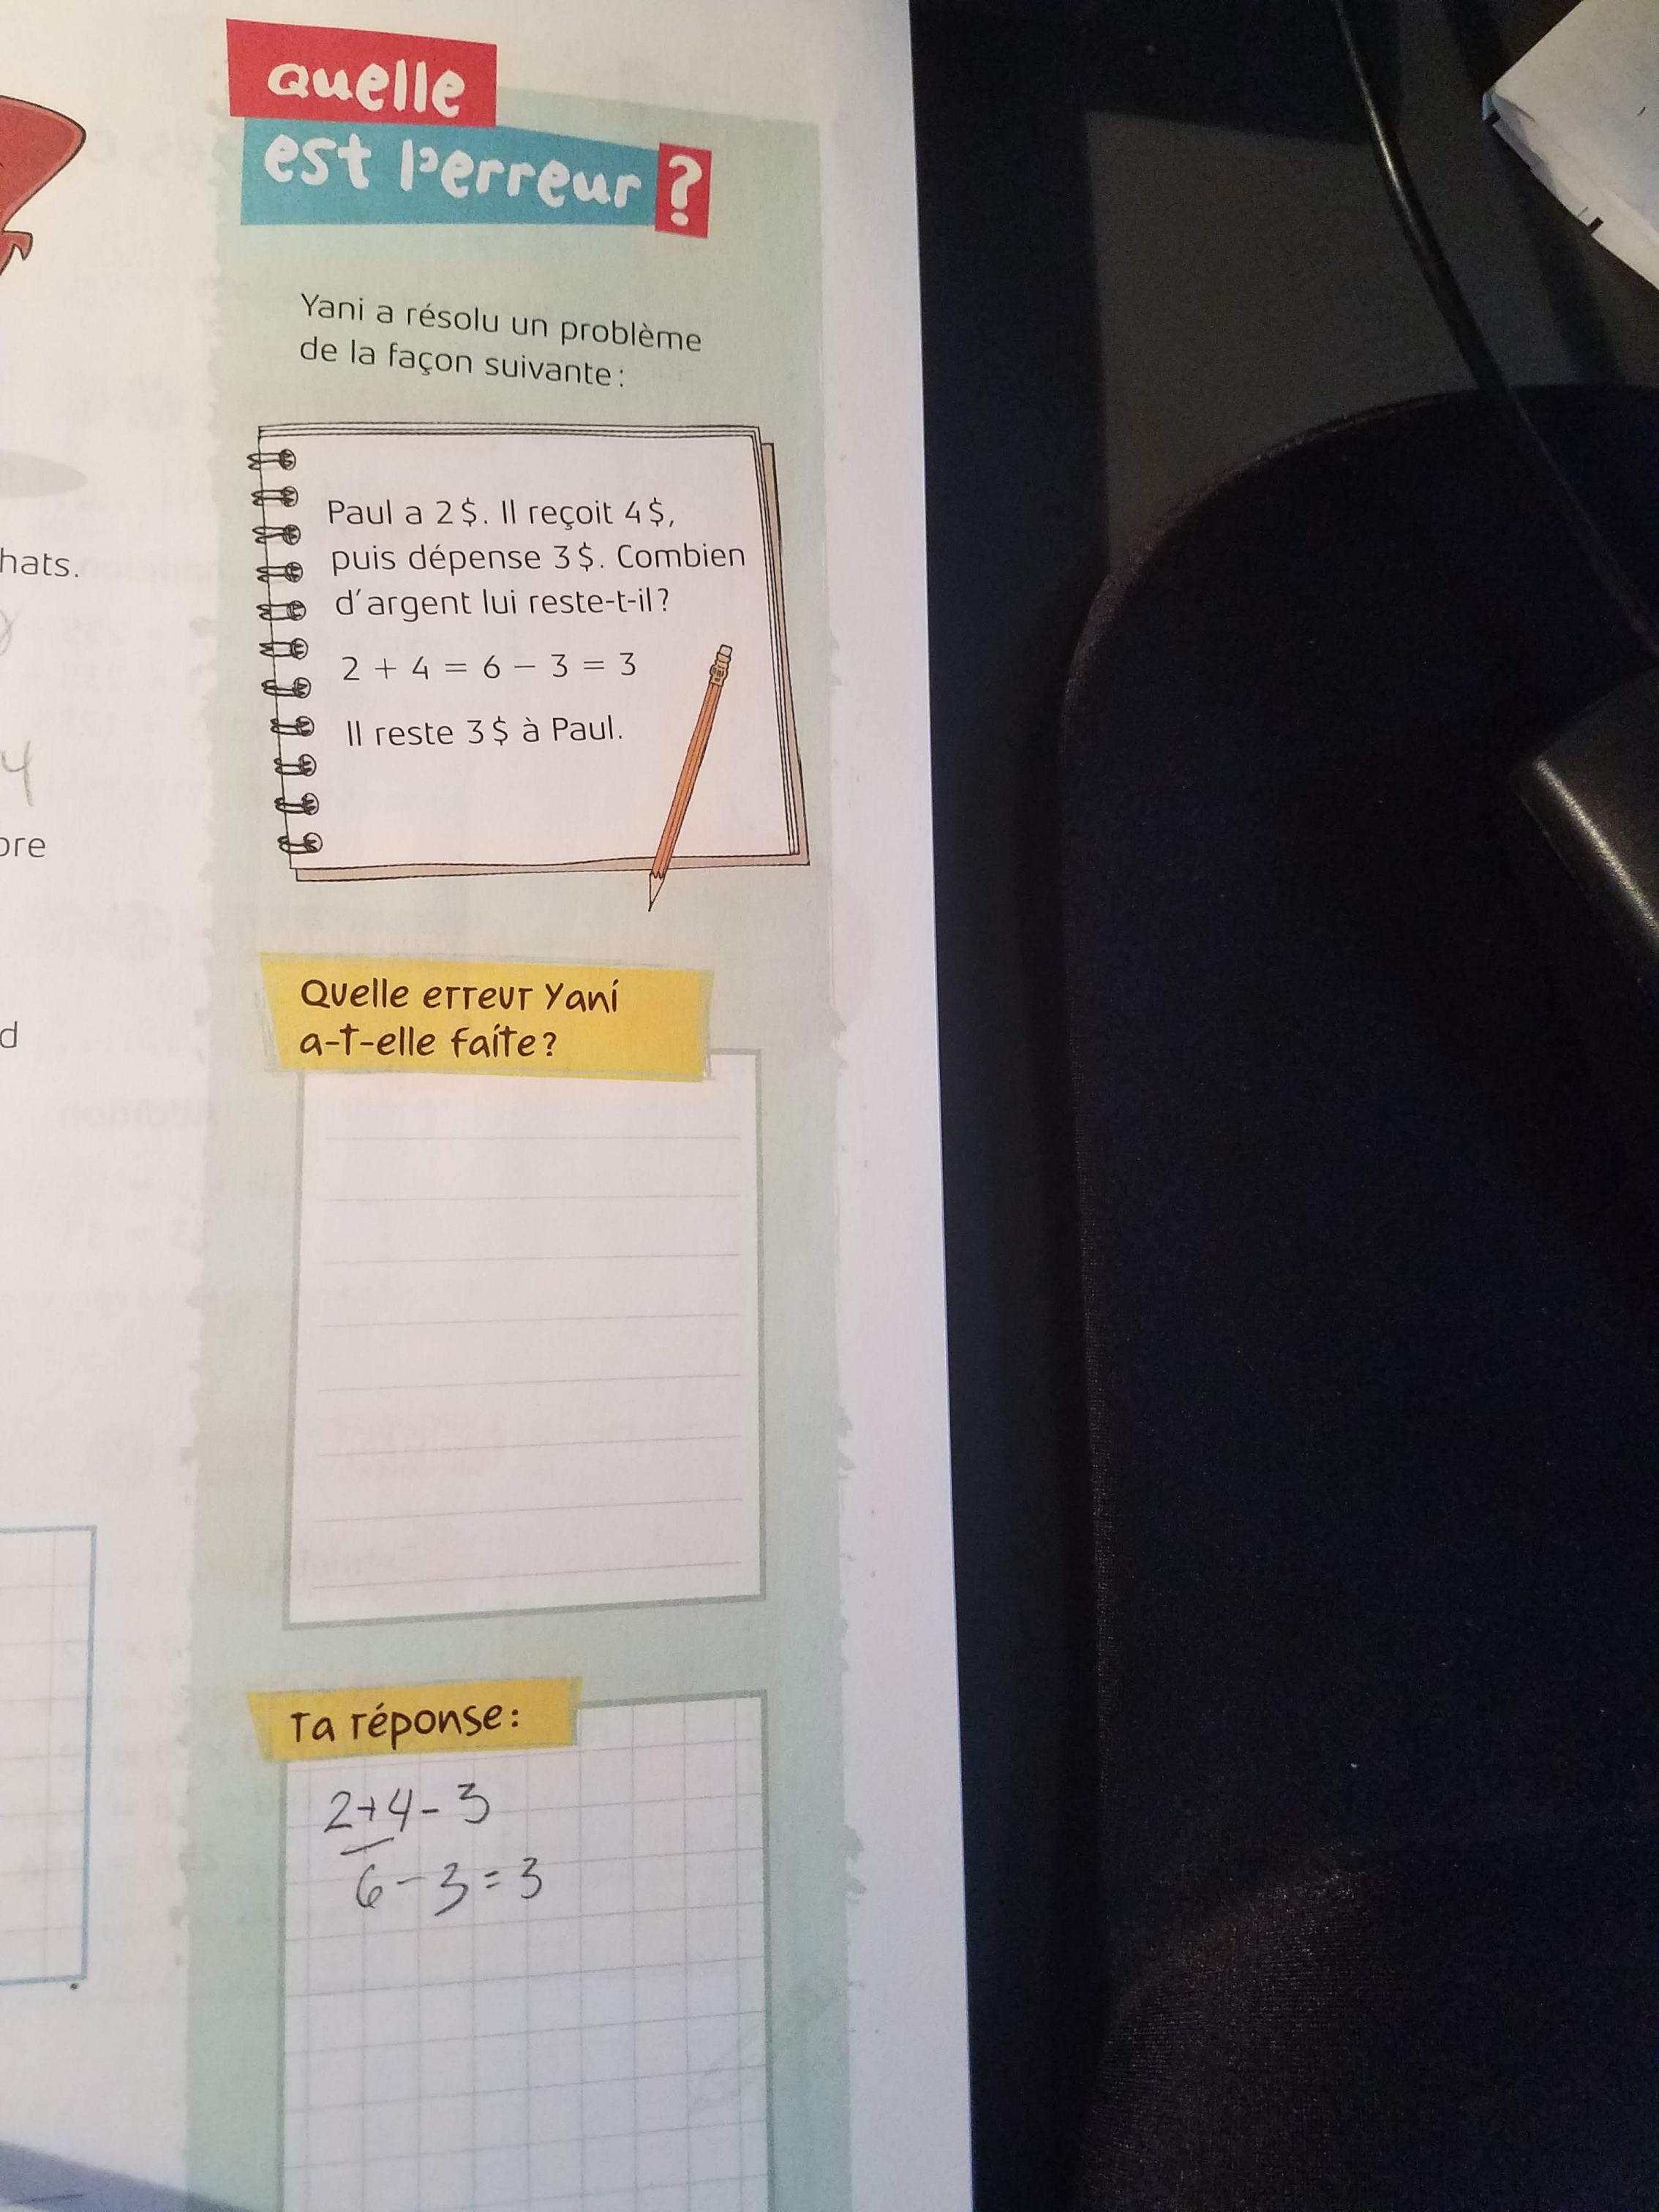 Quelle
est l'erreur ?
Yani a résolu un problème
de la façon suivante :
Paul a 2 $. Il reçoit 4 $,
puis dépense 3 $. Combien
d'argent lui reste-t-il ?
2 + 4 = 6 – 3 = 3
Il reste 3 $ à Paul.
hats.
4
bre
d
Quelle erreur Yani
a-t-elle faite ?
Ta réponse :
2+4-3
6-3=3